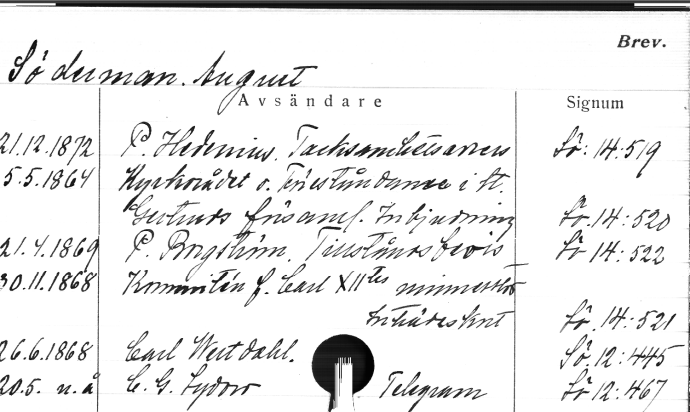 Brev.
Söderman. August
Avsändare Signum
21.12.1872 P. Hedenius. Tacksamhetsadress Sö: 14:519
5.5.1864 Kyrkorådet o. Föreståndarne i St.
Gertruds församl. Inbjudning Sö. 14:520
21.4.1869 P. Bergström. Tillståndsbevis Sö 14:522
30.11.1868 Kommitén f. Carl XIItes minnesstod
Inträdeskort Sö. 14:521
26.6.1868 Carl Westdahl. Sö. 12:445
20.5. u.å C. G. Sydow Telegram Sö 12:467